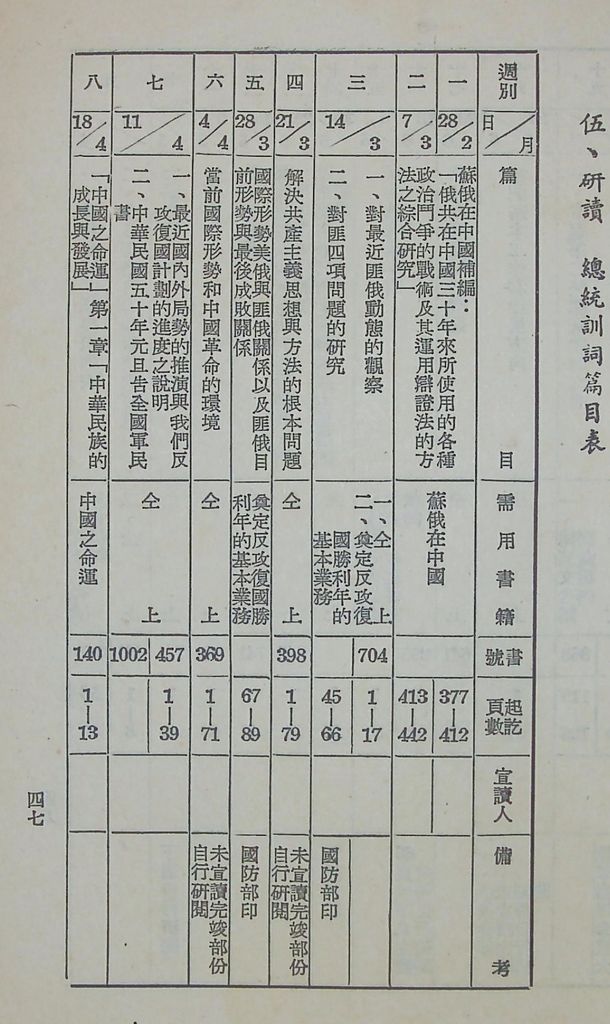 伍、研讀 總統訓詞篇目表
週別
日/月
篇目
需用書籍
書號
起訖頁數
宣讀人
備考
一
28/2
二
7/3
蘇俄在中國補編：
「俄共在中國三十年來所使用的各種
政治鬥爭的戰術及其運用辯證法的方
法之綜合研究」
蘇俄在中國
377—412
413—442
三
14/3
一、對最近匪俄動態的觀察
二、對匪四項問題的研究
一、仝上
二、奠定反攻復
國勝利年的
基本業務
704
1—17
45—66
國防部印
四
21/3
解決共產主義思想與方法的根本問題
仝上
398
1—79
未宣讀完竣部份
自行研閱
五
28/3
國際形勢美俄與匪俄關係以及匪俄目
前形勢與最後成敗關係
奠定反攻復國勝
利年的基本業務
67—89
國防部印
六
4/4
當前國際形勢和中國革命的環境
仝上
369
1—71
未宣讀完竣部份
自行研閱
七
11/4
一、最近國內外局勢的推演與我們反
攻復國計劃的進度之說明
二、中華民國五十年元旦告全國軍民
書
仝上
457
1002
1—39
八
18/4
「中國之命運」第一章「中華民族的
成長與發展」
中國之命運
140
1—13
四七